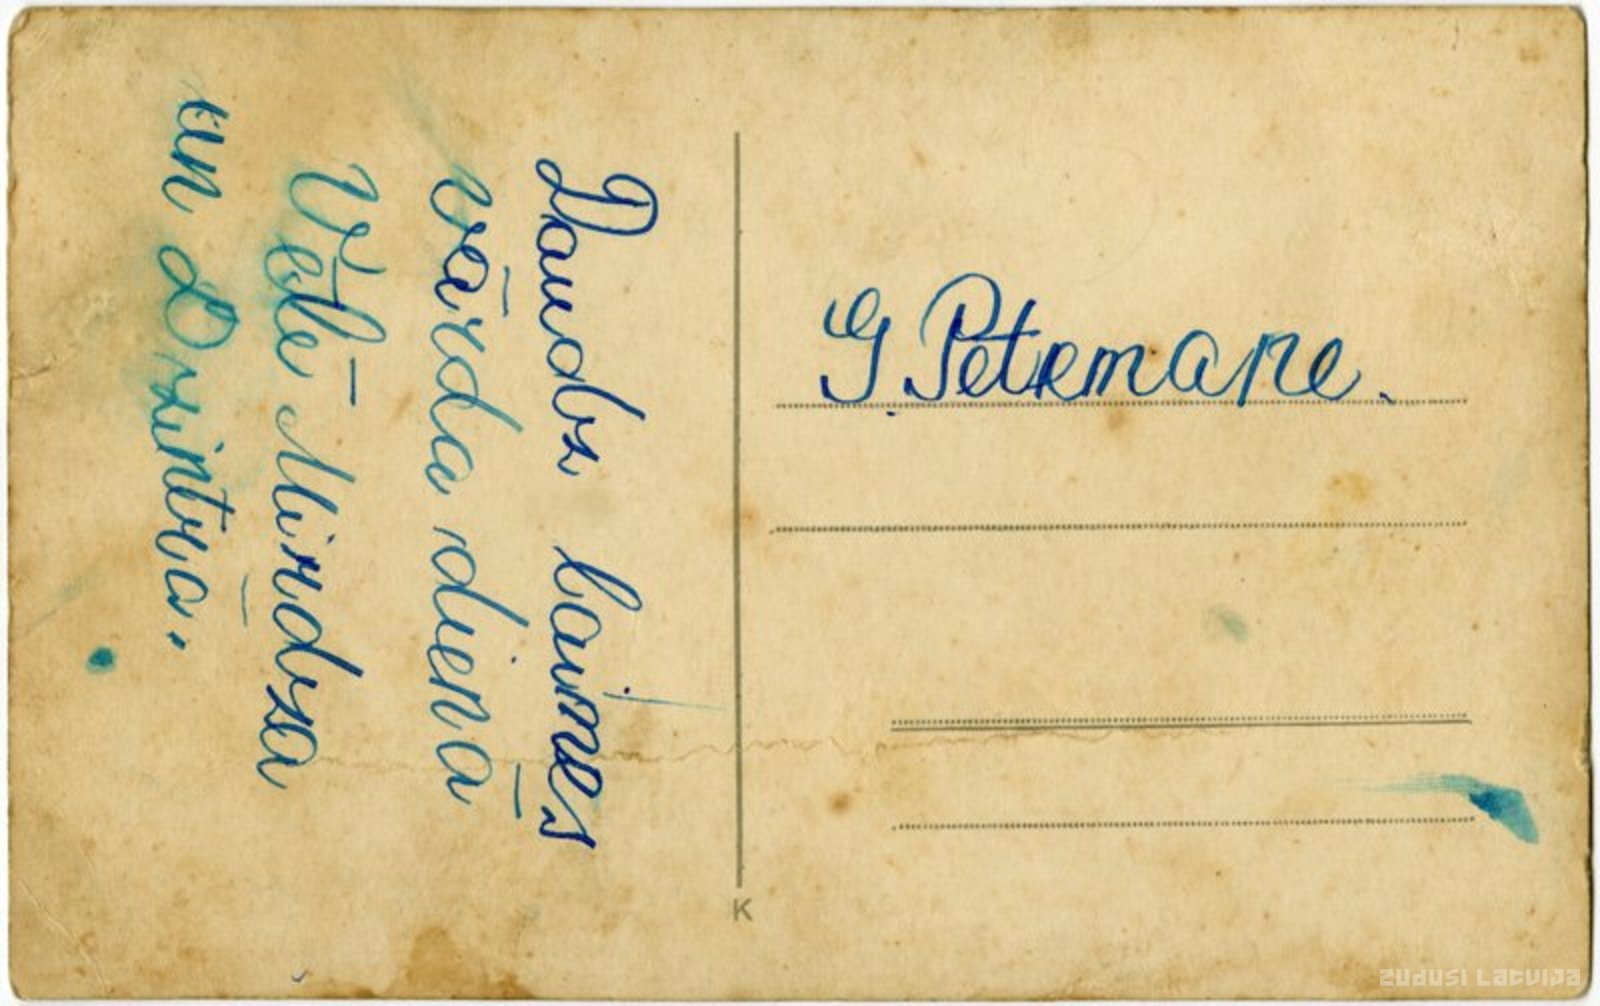 Daudz laimes
vārda dienā
Vēlē Mirdza
un Dzintra.
G. Petermane.
K
ZUDUSI LATVIJA